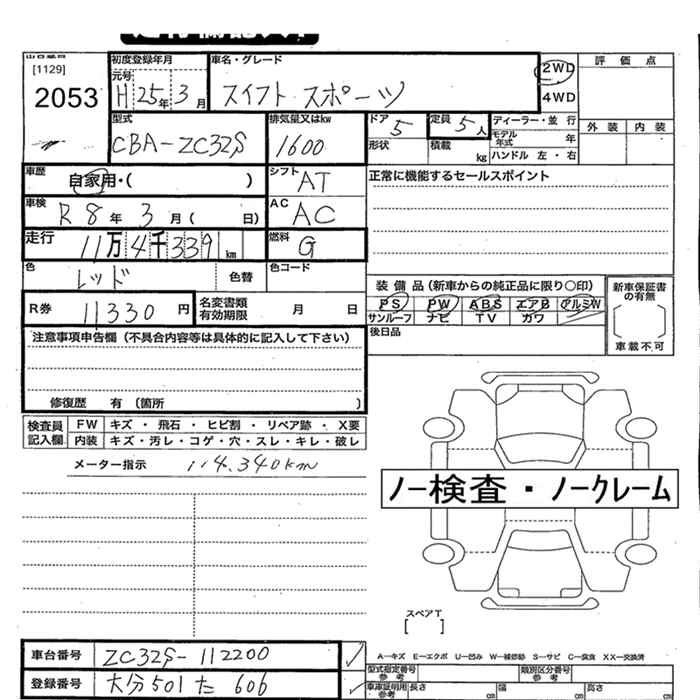 [1129]
2053
初度登録年月
元号
H 25年 3月
車名・グレード
スイフト スポーツ
2WD
4WD
評 価 点
外 装 内 装
型式
CBA-ZC32S
排気量又はkw
1600
ドア 5
定員 5人
ディーラー・並行
モデル年式 年
形状
積載 kg
ハンドル 左・右
車歴
自家用・( )
シフト AT
正常に機能するセールスポイント
車検
R 8年 3月 ( 日)
AC AC
走行
11万4千339km
燃料 G
色 レッド
色替
色コード
R券 11330円
名変書類有効期限 月 日
装備品(新車からの純正品に限り○印)
PS PW ABS エアB アルミW
サンルーフ ナビ TV カワ
後日品
新車保証書の有無
車載不可
注意事項申告欄(不具合内容等は具体的に記入して下さい)
修復歴 有(箇所 )
検査員記入欄
FW キズ・飛石・ヒビ割・リペア跡・X要
内装 キズ・汚レ・コゲ・穴・スレ・キレ・破レ
メーター指示 114.340km
ノー検査・ノークレーム
スペアT
[ ]
A—キズ E—エクボ U—凹み W—補修跡 S—サビ C—腐食 XX—交換済
車台番号 ZC32S-112200
登録番号 大分501た606
型式指定番号 参考
類別区分番号 参考
車庫証明用 参考
長さ cm
幅 cm
高さ cm